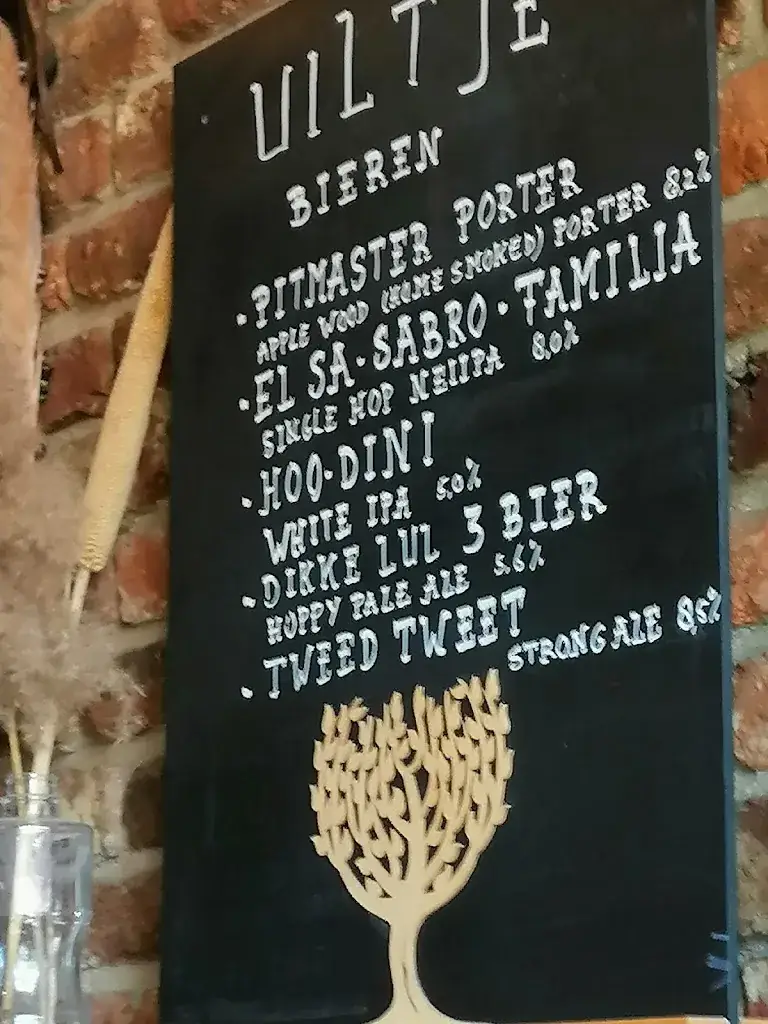 UILTJE
BIEREN
· PITMASTER PORTER
APPLE WOOD (HOME SMOKED) PORTER 8,2%
· EL SA·SABRO·FAMILIA
SINGLE HOP NEIIPA 8,0%
· HOO·DINI
WHITE IPA 5,0%
· DIKKE LUL 3 BIER
HOPPY PALE ALE 5,6%
· TWEED TWEET
STRONG ALE 8,5%